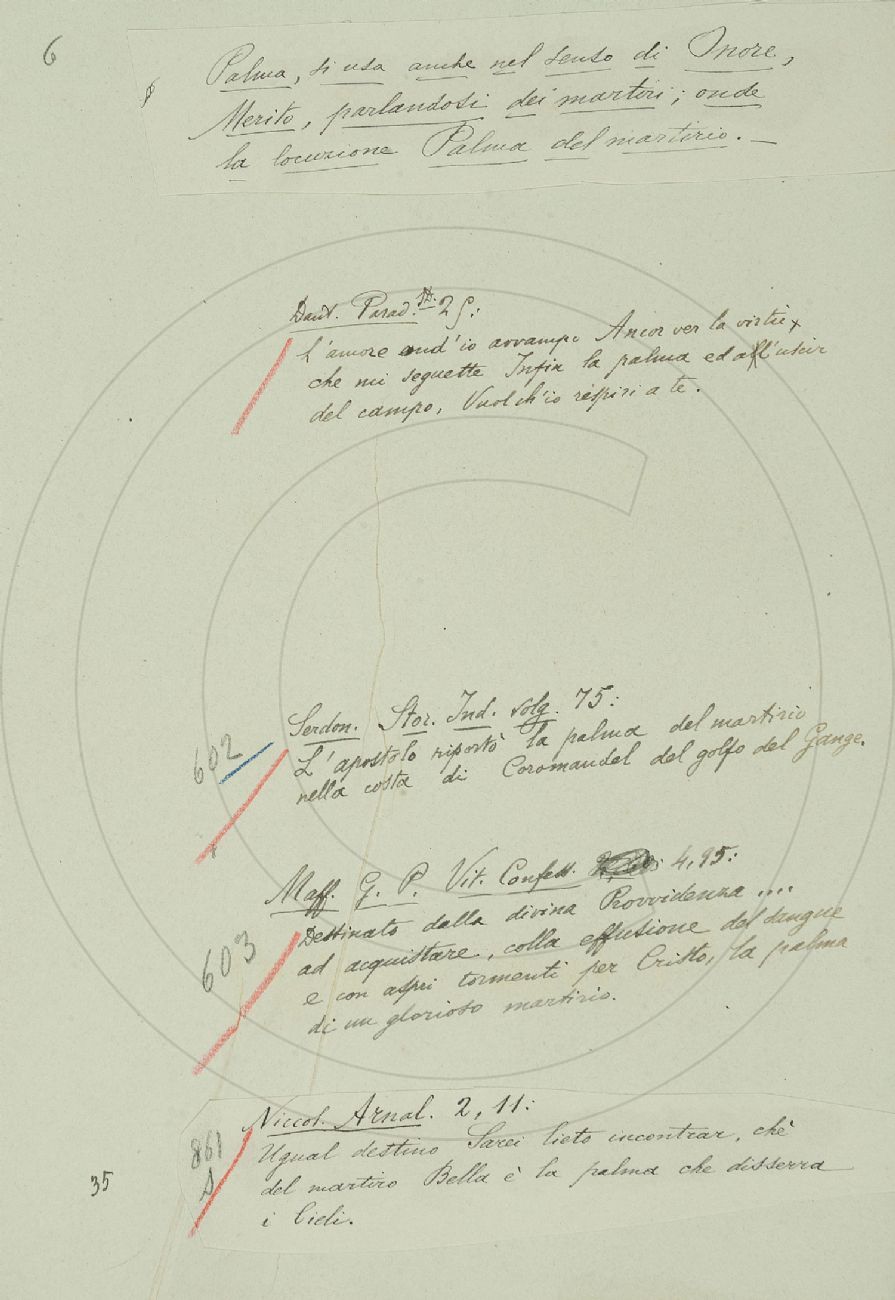 6
Palma, si usa anche nel senso di Onore,
Merito, parlandosi dei martiri; onde
la locuzione Palma del martirio. —
Dant. Parad. 25:
L'amore ond'io avvampo Ancor ver la virtù
che mi seguette Infin la palma ed all'uscir
del campo, Vuol ch'io respiri a te.
602
Serdon. Stor. Ind. volg. 75:
L'apostolo riportò la palma del martirio
nella costa di Coromandel del golfo del Gange.
603
Maff. G. P. Vit. Confess. 4,95:
Destinato dalla divina Provvidenza ....
ad acquistare, colla effusione del sangue
e con aspri tormenti per Cristo, la palma
di un glorioso martirio.
861
A
Niccol. Arnal. 2, 11:
Ugual destino Sarei lieto incontrar, chè
del martiro Bella è la palma che disserra
i Cieli.
35